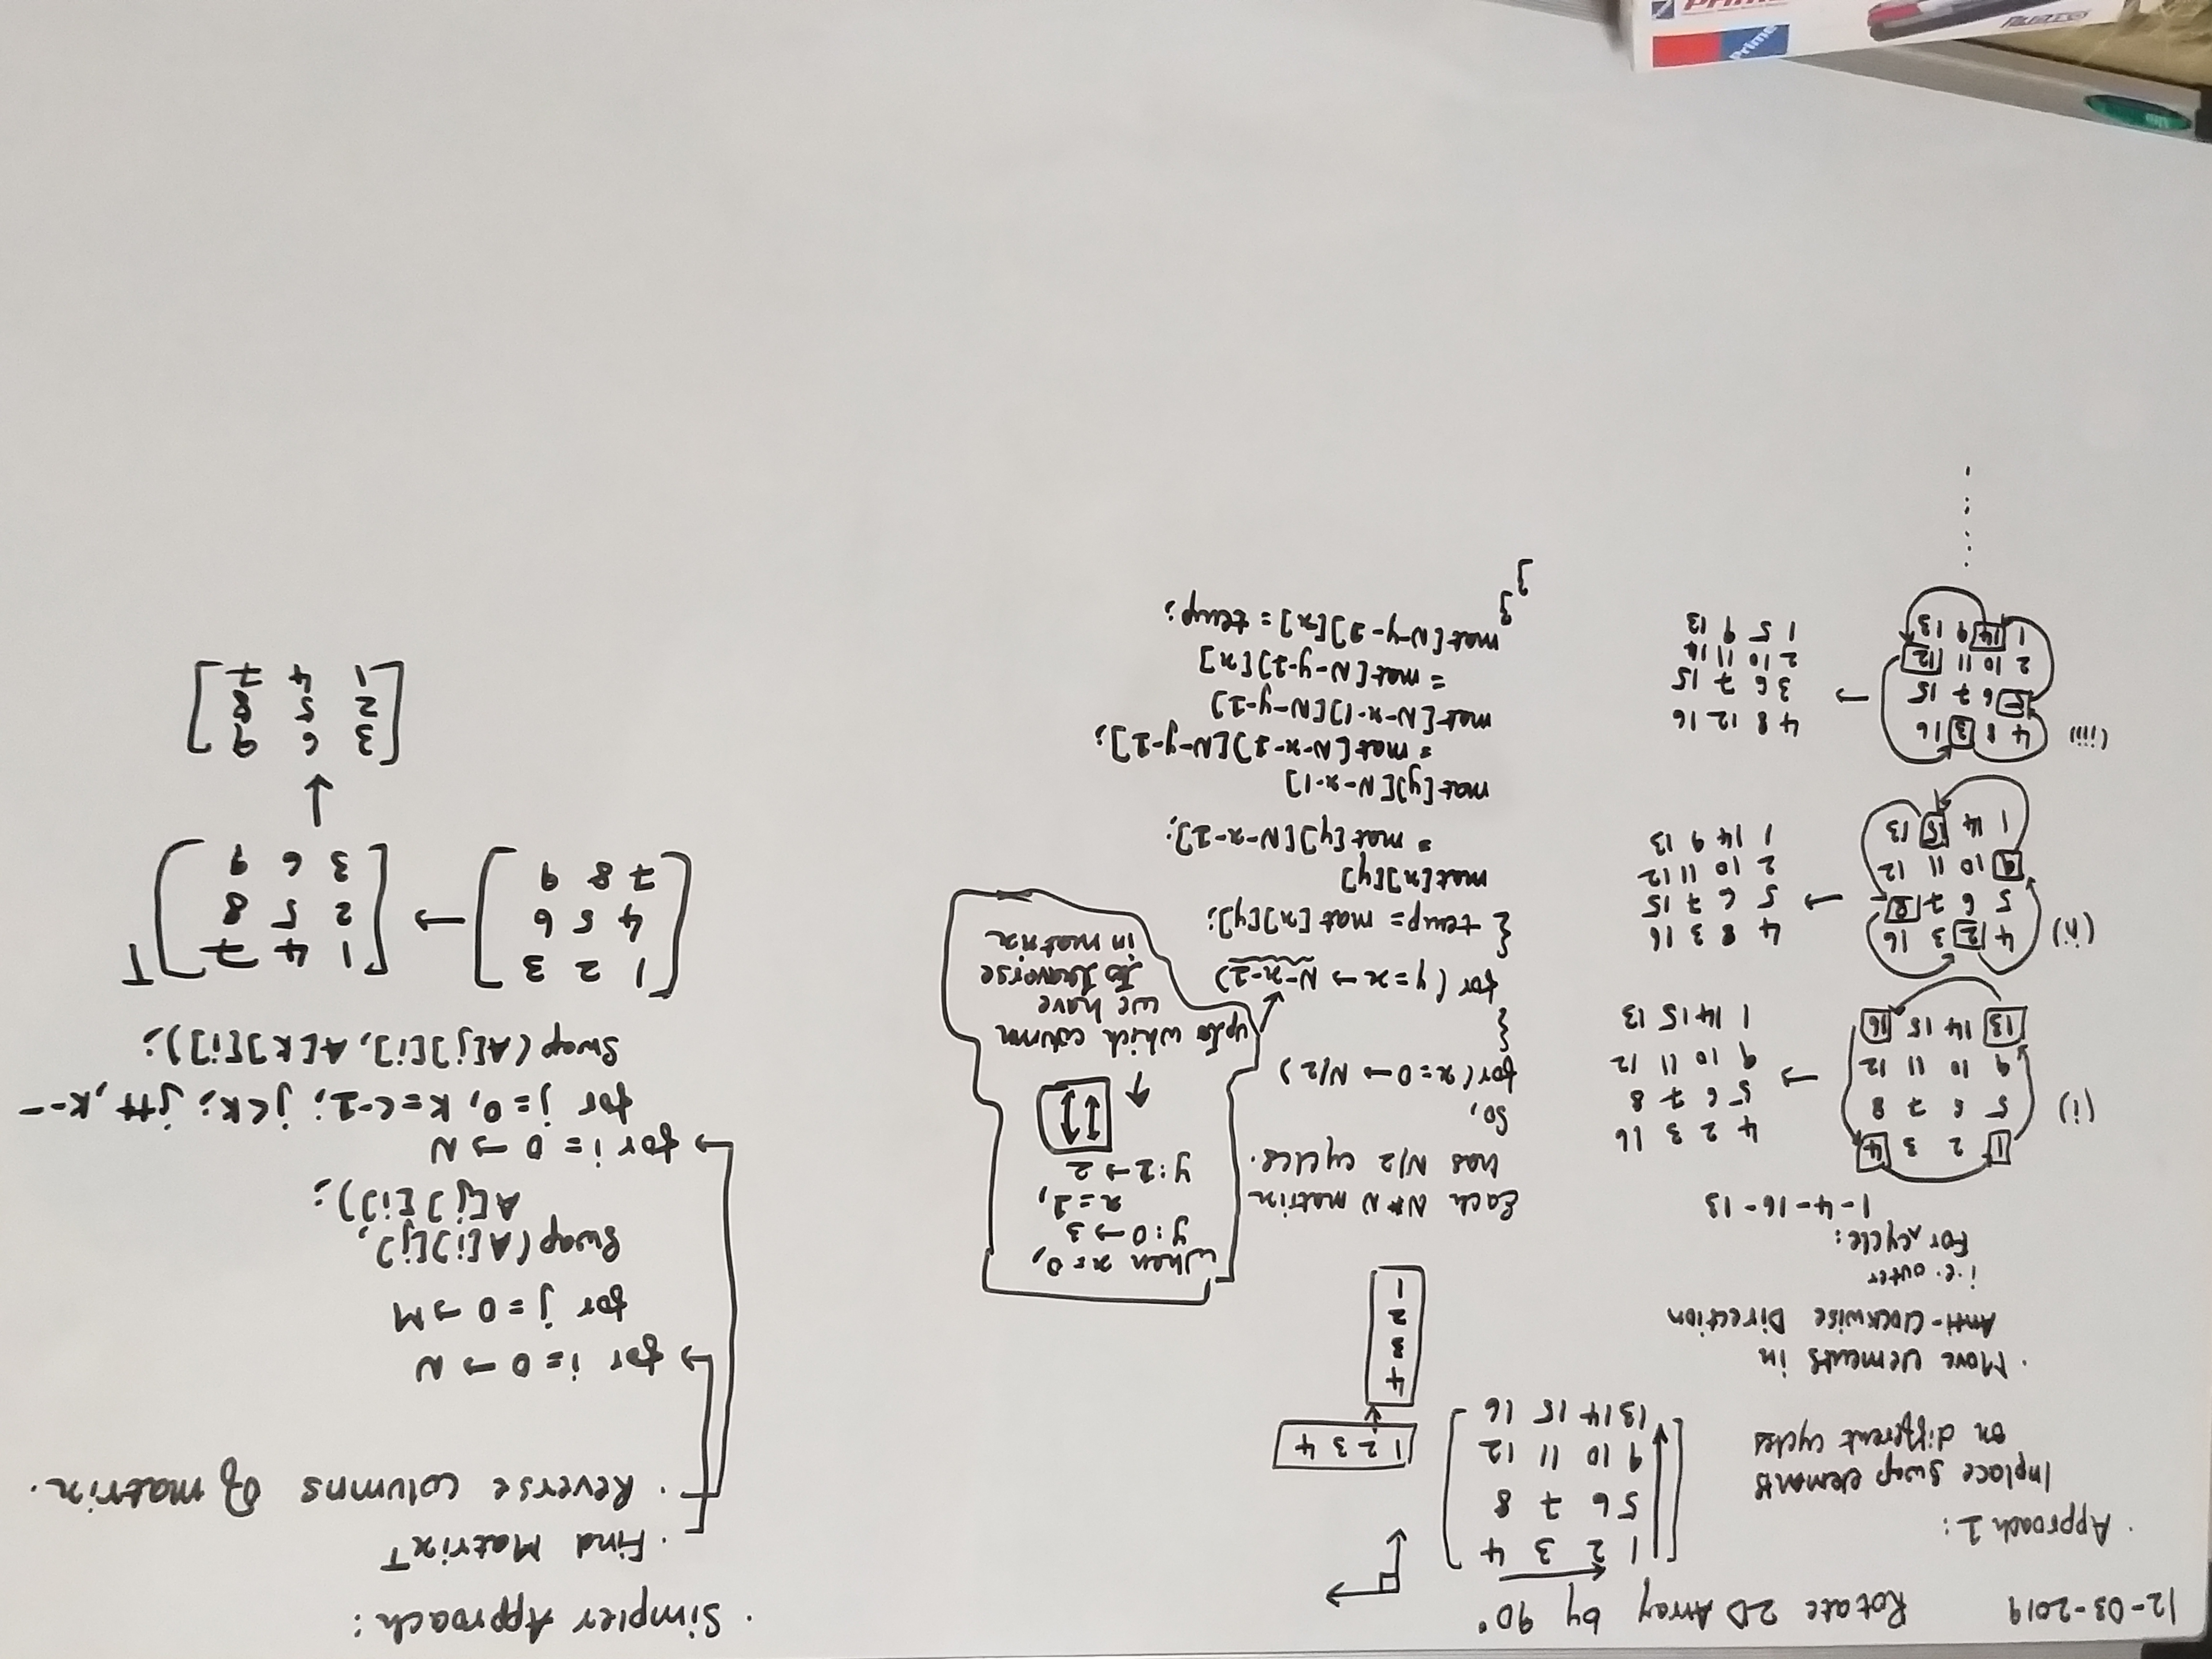 12-03-2019 Rotate 2D Array by 90°
· Approach 1:
Inplace swap elements
on different cycles
1 2 3 4
5 6 7 8
9 10 11 12
13 14 15 16
1 2 3 4
4
3
2
1
· Move elements in
Anti-Clockwise Direction
i.e. outer
For ^ cycle:
1-4-16-13
(i)
1 2 3 4
5 6 7 8
9 10 11 12
13 14 15 16
→
4 2 3 16
5 6 7 8
9 10 11 12
1 14 15 13
(ii)
4 2 3 16
5 6 7 8
9 10 11 12
1 14 15 13
→
4 8 3 16
5 6 7 15
2 10 11 12
1 14 9 13
(iii)
4 8 3 16
5 6 7 15
2 10 11 12
1 14 9 13
→
4 8 12 16
3 6 7 15
2 10 11 14
1 5 9 13
Each N*N matrix
has N/2 cycles.
So,
for(x=0→ N/2)
{
for (y=x→ N-x-1)
{ temp= mat[x][y];
mat[x][y]
= mat[y][N-x-1];
mat[y][N-x-1]
= mat[N-x-1][N-y-1];
mat[N-x-1][N-y-1]
= mat[N-y-1][x]
mat[N-y-1][x]= temp;
}
}
When x=0,
y:0→3
x=1,
y:1→2
upto which column
we have
To Traverse
in matrix
· Simpler Approach:
· Find Matrix^T
· Reverse columns of matrix.
for i=0→N
for j=0→M
Swap(A[i][j],
A[j][i]);
for i= 0→N
for j=0, K=C-1; j<K; j++, K--
Swap(A[j][i], A[K][i]);
1 2 3
4 5 6
7 8 9
→
1 4 7
2 5 8
3 6 9
T
↓
3 6 9
2 5 8
1 4 7
Prime